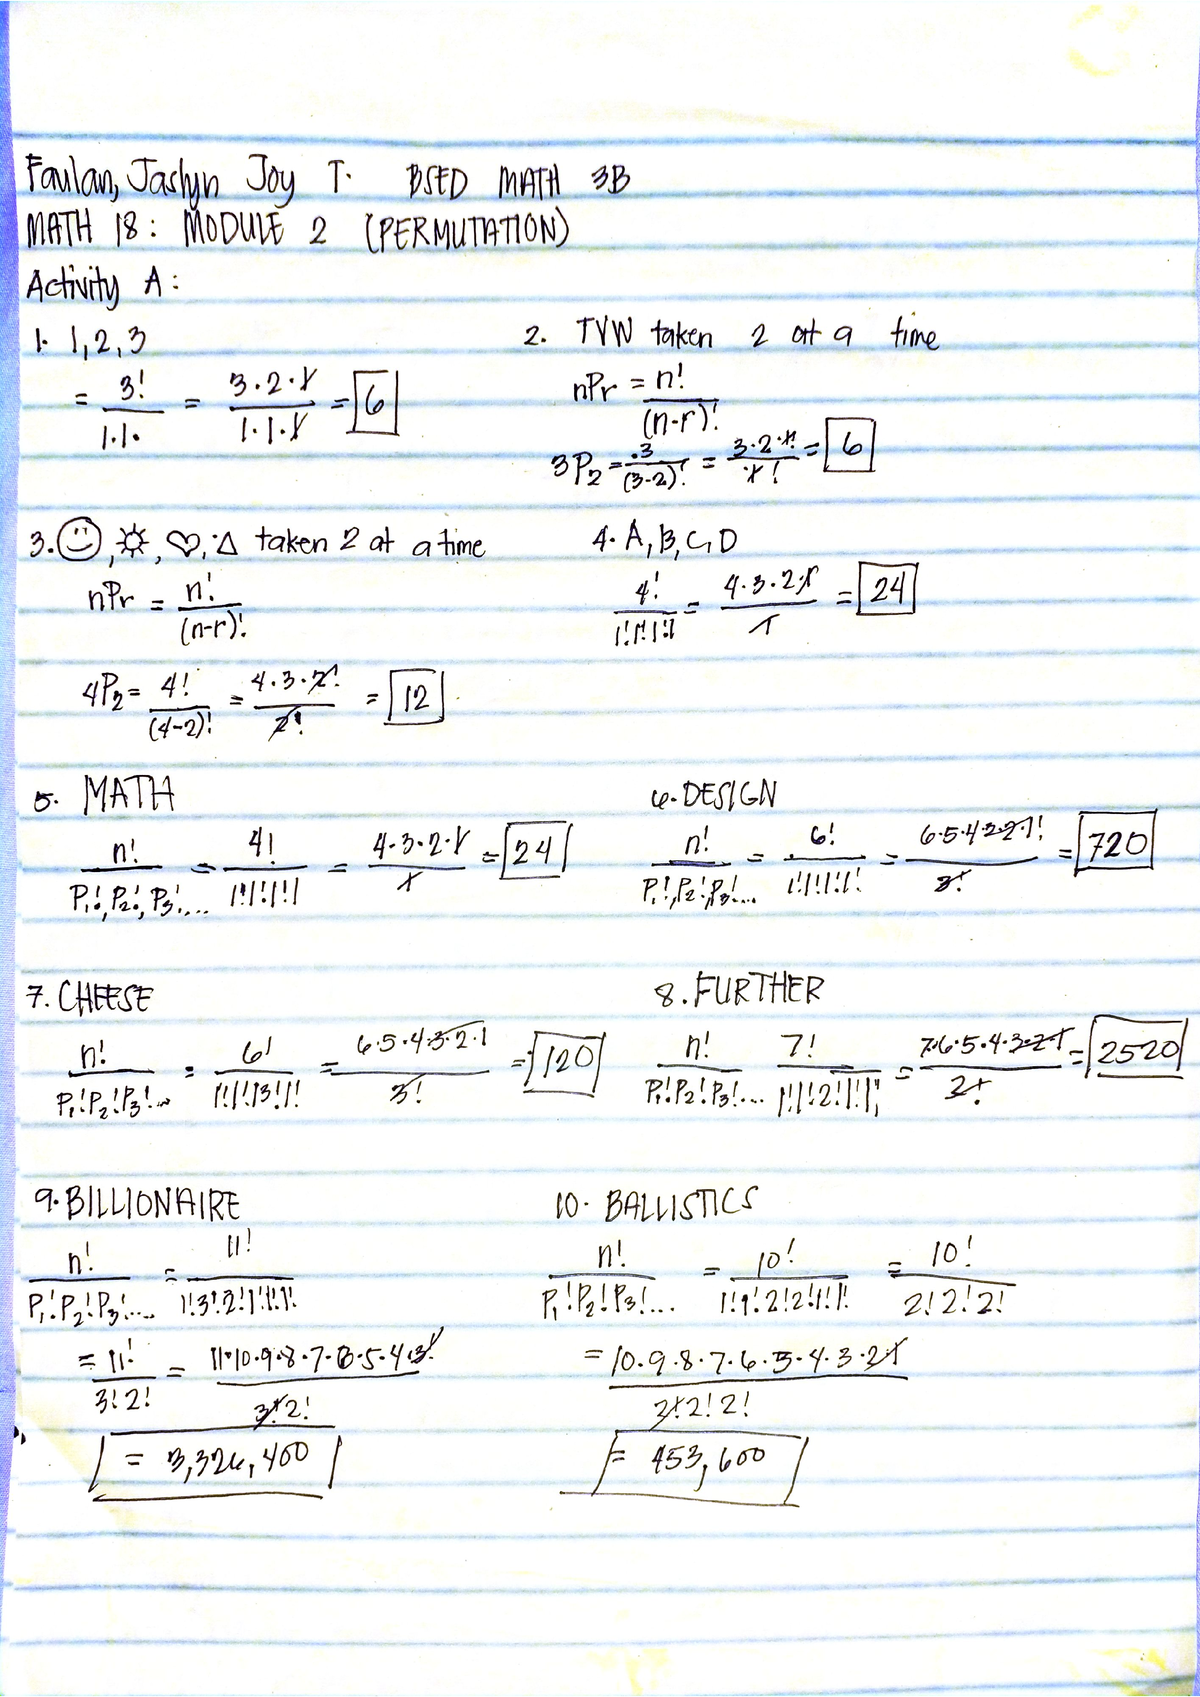 Faulan, Jaslyn Joy T. BSED MATH 3B
MATH 18: MODULE 2 (PERMUTATION)
Activity A:
1. 1, 2, 3
= 3!/1·1· = 3·2·1/1·1·1 = 6
2. TVW taken 2 at a time
nPr = n!/(n-r)!
3P2 = ·3/(3-2)! = 3·2·1!/1! = 6
3. ☺, ☼, ♡, △ taken 2 at a time
nPr = n!/(n-r)!
4P2 = 4!/(4-2)! = 4·3·2!/2! = 12
4. A, B, C, D
4!/1!1!1!1! = 4·3·2·1/1 = 24
5. MATH
n!/P1!, P2!, P3!,... = 4!/1!1!1!1 = 4·3·2·1/1 = 24
6. DESIGN
n!/P1!, P2!, P3!... = 6!/1!1!1!1!1! = 6·5·4·3·2·1!/3! = 720
7. CHEESE
n!/P1!P2!P3!... = 6!/1!1!3!1! = 6·5·4·3·2·1/3! = 120
8. FURTHER
n!/P1!P2!P3!... 7!/1!1!2!1!1! = 7·6·5·4·3·2·1/2! = 2520
9. BILLIONAIRE
n!/P1!P2!P3!... = 11!/1!3!2!1!1!1!
= 11!/3!2! = 11·10·9·8·7·6·5·4·3!/3!2!
= 3,326,400
10. BALLISTICS
n!/P1!P2!P3!... = 10!/1!1!2!2!1!1! = 10!/2!2!2!
= 10·9·8·7·6·5·4·3·2·1/2!2!2!
= 453,600